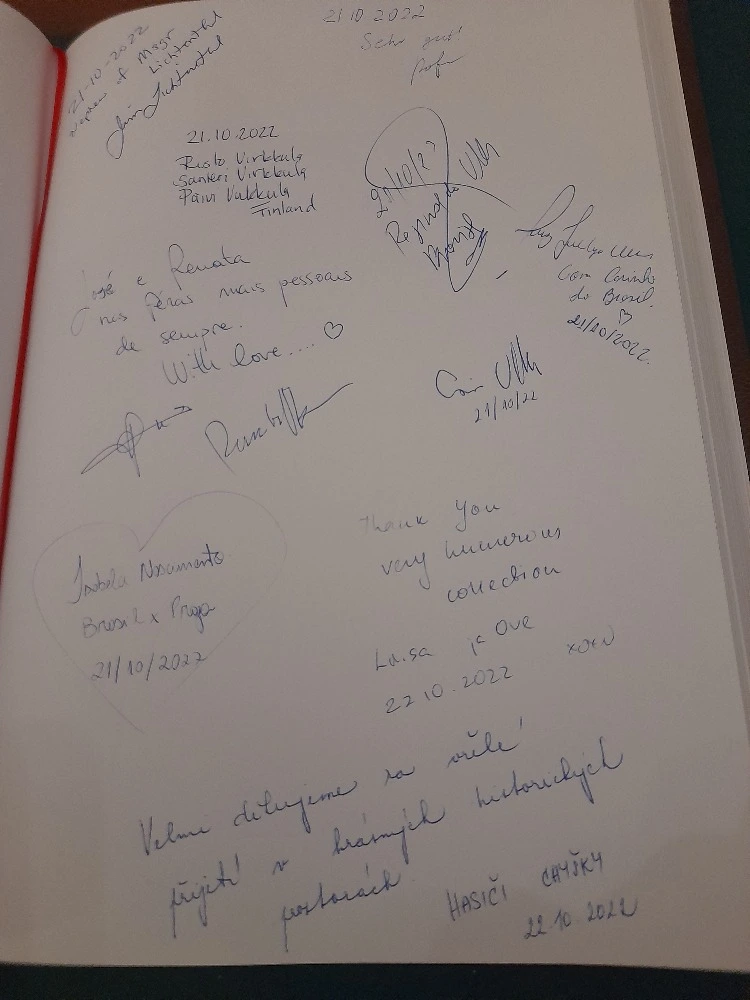 21-10-2022
nephew of Msgr
Lichtenthal
Lichtenthal
21 10 2022
Sehr gut!
21.10.2022
Risto Virkkula
Santeri Virkkula
Päivi Virkkula
Finland
21/10/22
Brasil
Com Carinho
do Brasil.
21/10/2022.
José e Renata
nas férias mais pessoais
de sempre.
With love....
21/10/22
Isabela Nascimento
Brasil x Praga
21/10/2022
Thank You
very humerous
collection
Laisa ja Ove
22.10.2022
Velmi děkujeme za vřelé
přijetí v krásných historických
prostorách
HASIČI CHYŠKY
22.10.2022